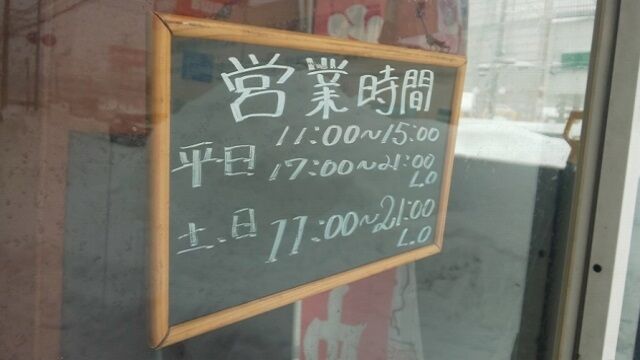 営業時間
11:00~15:00
平日 17:00~21:00
L.O
土、日 11:00~21:00
L.O